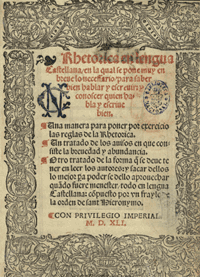 Rhetorica en lengua
Castellana/ en la qual se pone muy en
breue lo necessario/ para saber
bien hablar y escreuir: y
conoscer quien ha=
bla y escriue
bien.
Una manera para poner por exercicio
las reglas de la Rhetorica.
Un tratado de los auisos en que con
siste la breuedad y abundancia.
Otro tratado de la forma q̃ se deue te
ner en leer los autores: y sacar dellos
lo mejor pa poder se dello aprouechar
quãdo fuere menester. todo en lengua
Castellana: cõpuesto por vn frayle d̃
la orden de sant Hieronymo.
CON PRIVILEGIO IMPERIAL.
M. D. XLI.